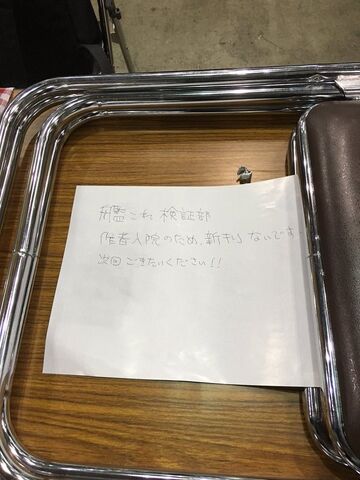 艦これ 検証部
作者入院のため、新刊ないです
次回ごきたいください!!